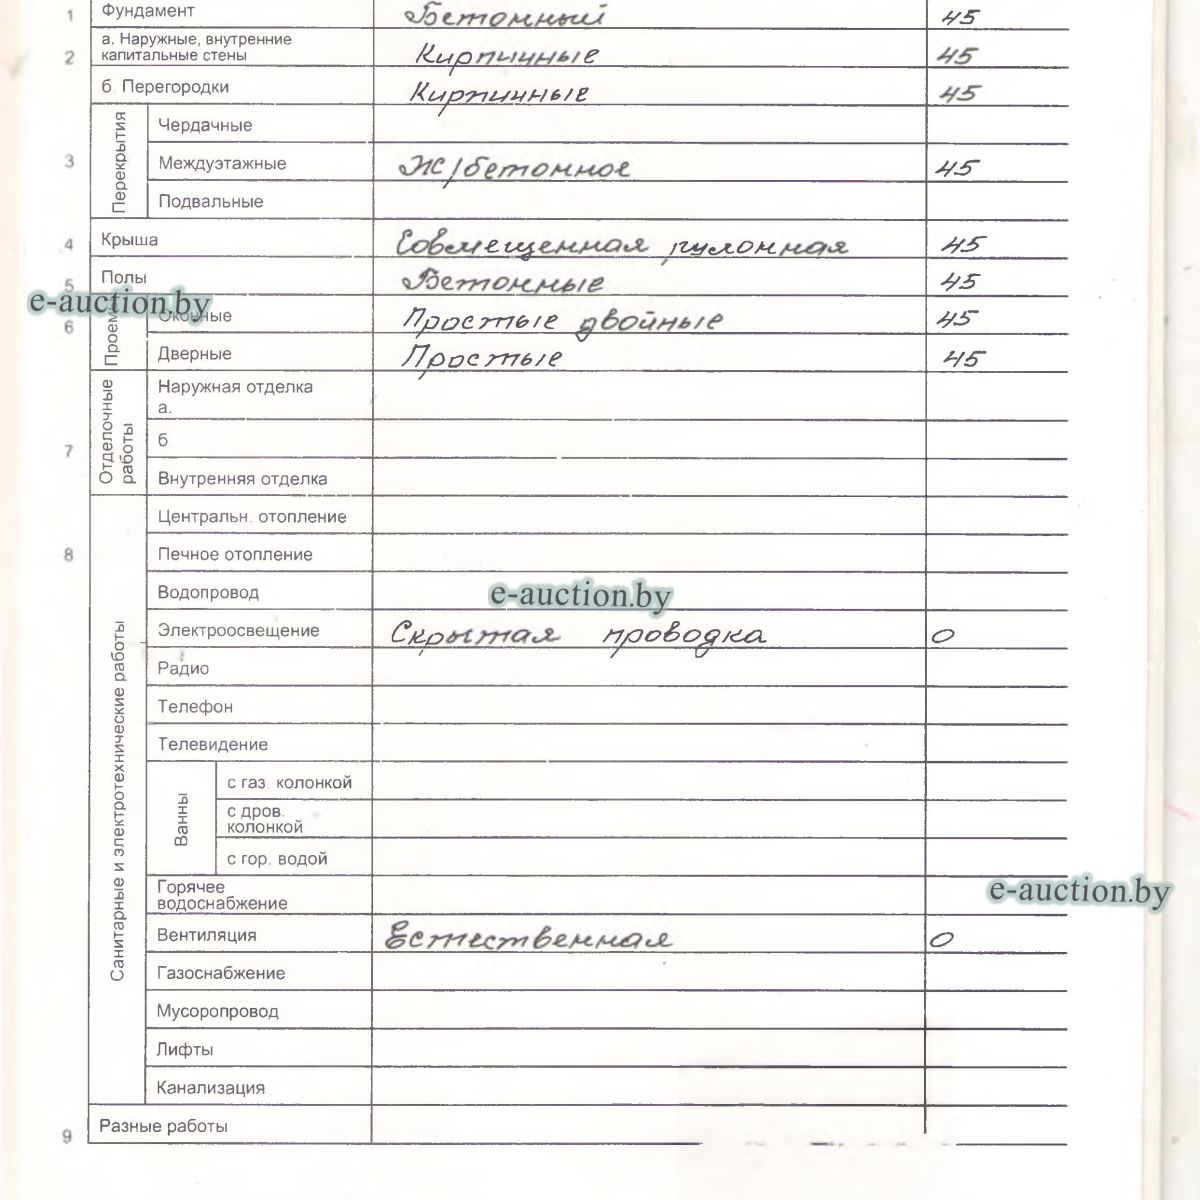 1 Фундамент Бетонный 45
2 а. Наружные, внутренние
капитальные стены Кирпичные 45
б. Перегородки Кирпичные 45
3 Перекрытия
Чердачные
Междуэтажные Ж/бетонное 45
Подвальные
4 Крыша Совмещенная рулонная 45
5 Полы Бетонные 45
e-auction.by
6 Проемы
Оконные Простые двойные 45
Дверные Простые 45
7 Отделочные
работы
Наружная отделка
а.
б
Внутренняя отделка
8 Санитарные и электротехнические работы
Центральн. отопление
Печное отопление
Водопровод
e-auction.by
Электроосвещение Скрытая проводка 0
Радио
Телефон
Телевидение
Ванны
с газ. колонкой
с дров.
колонкой
с гор. водой
Горячее
водоснабжение
e-auction.by
Вентиляция Естественная 0
Газоснабжение
Мусоропровод
Лифты
Канализация
9 Разные работы